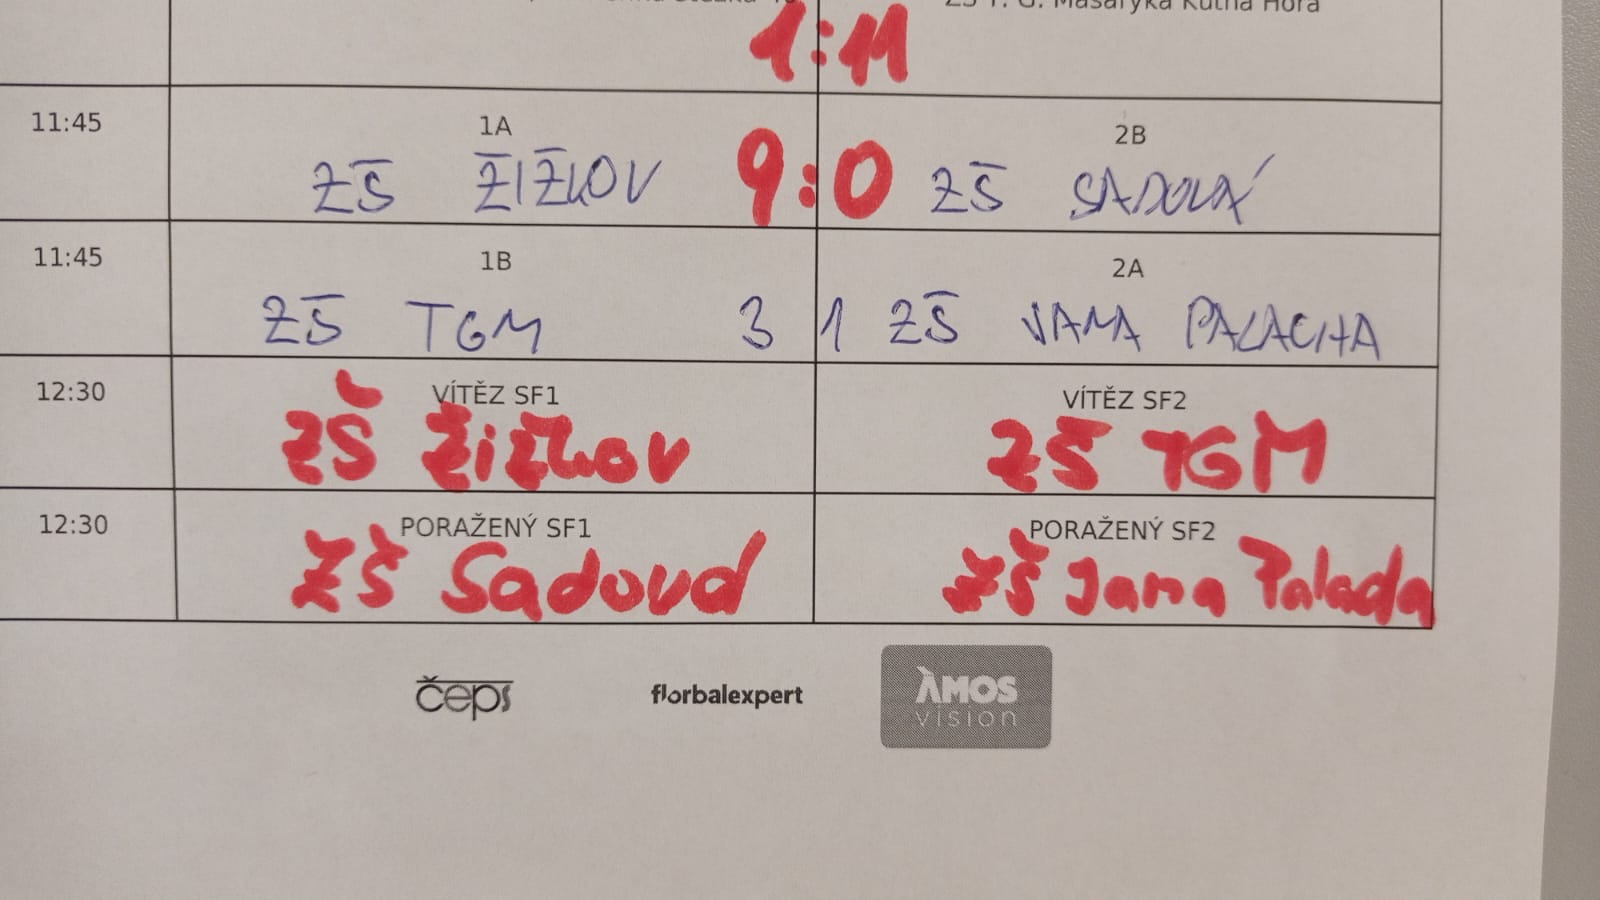 ZŠ T. G. Masaryka Kutná Hora
1:11
11:45 1A 2B
ZŠ ŽIŽKOV 9:0 ZŠ SADOVÁ
11:45 1B 2A
ZŠ TGM 3 1 ZŠ JANA PALACHA
12:30 VÍTĚZ SF1 VÍTĚZ SF2
ZŠ Žižkov ZŠ TGM
12:30 PORAŽENÝ SF1 PORAŽENÝ SF2
ZŠ Sadová ZŠ Jana Palacha
čeps florbalexpert ÁMOS
vision